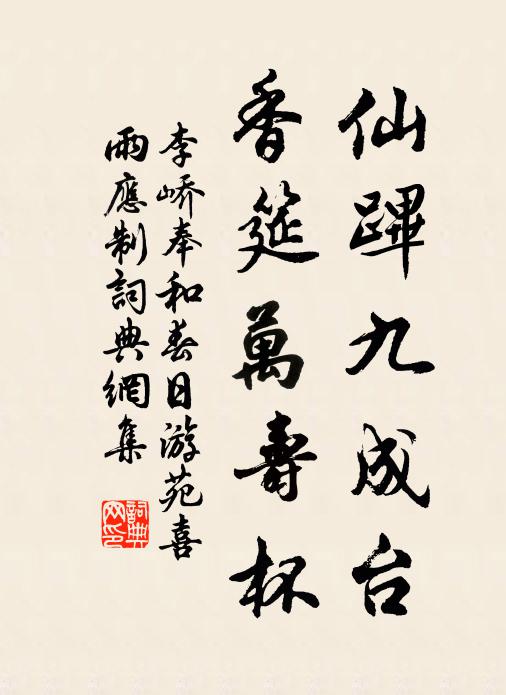 仙蹕九成台
香筵萬壽杯
李嶠奉和春日游苑喜
雨應制詞典網集
詞典
网印